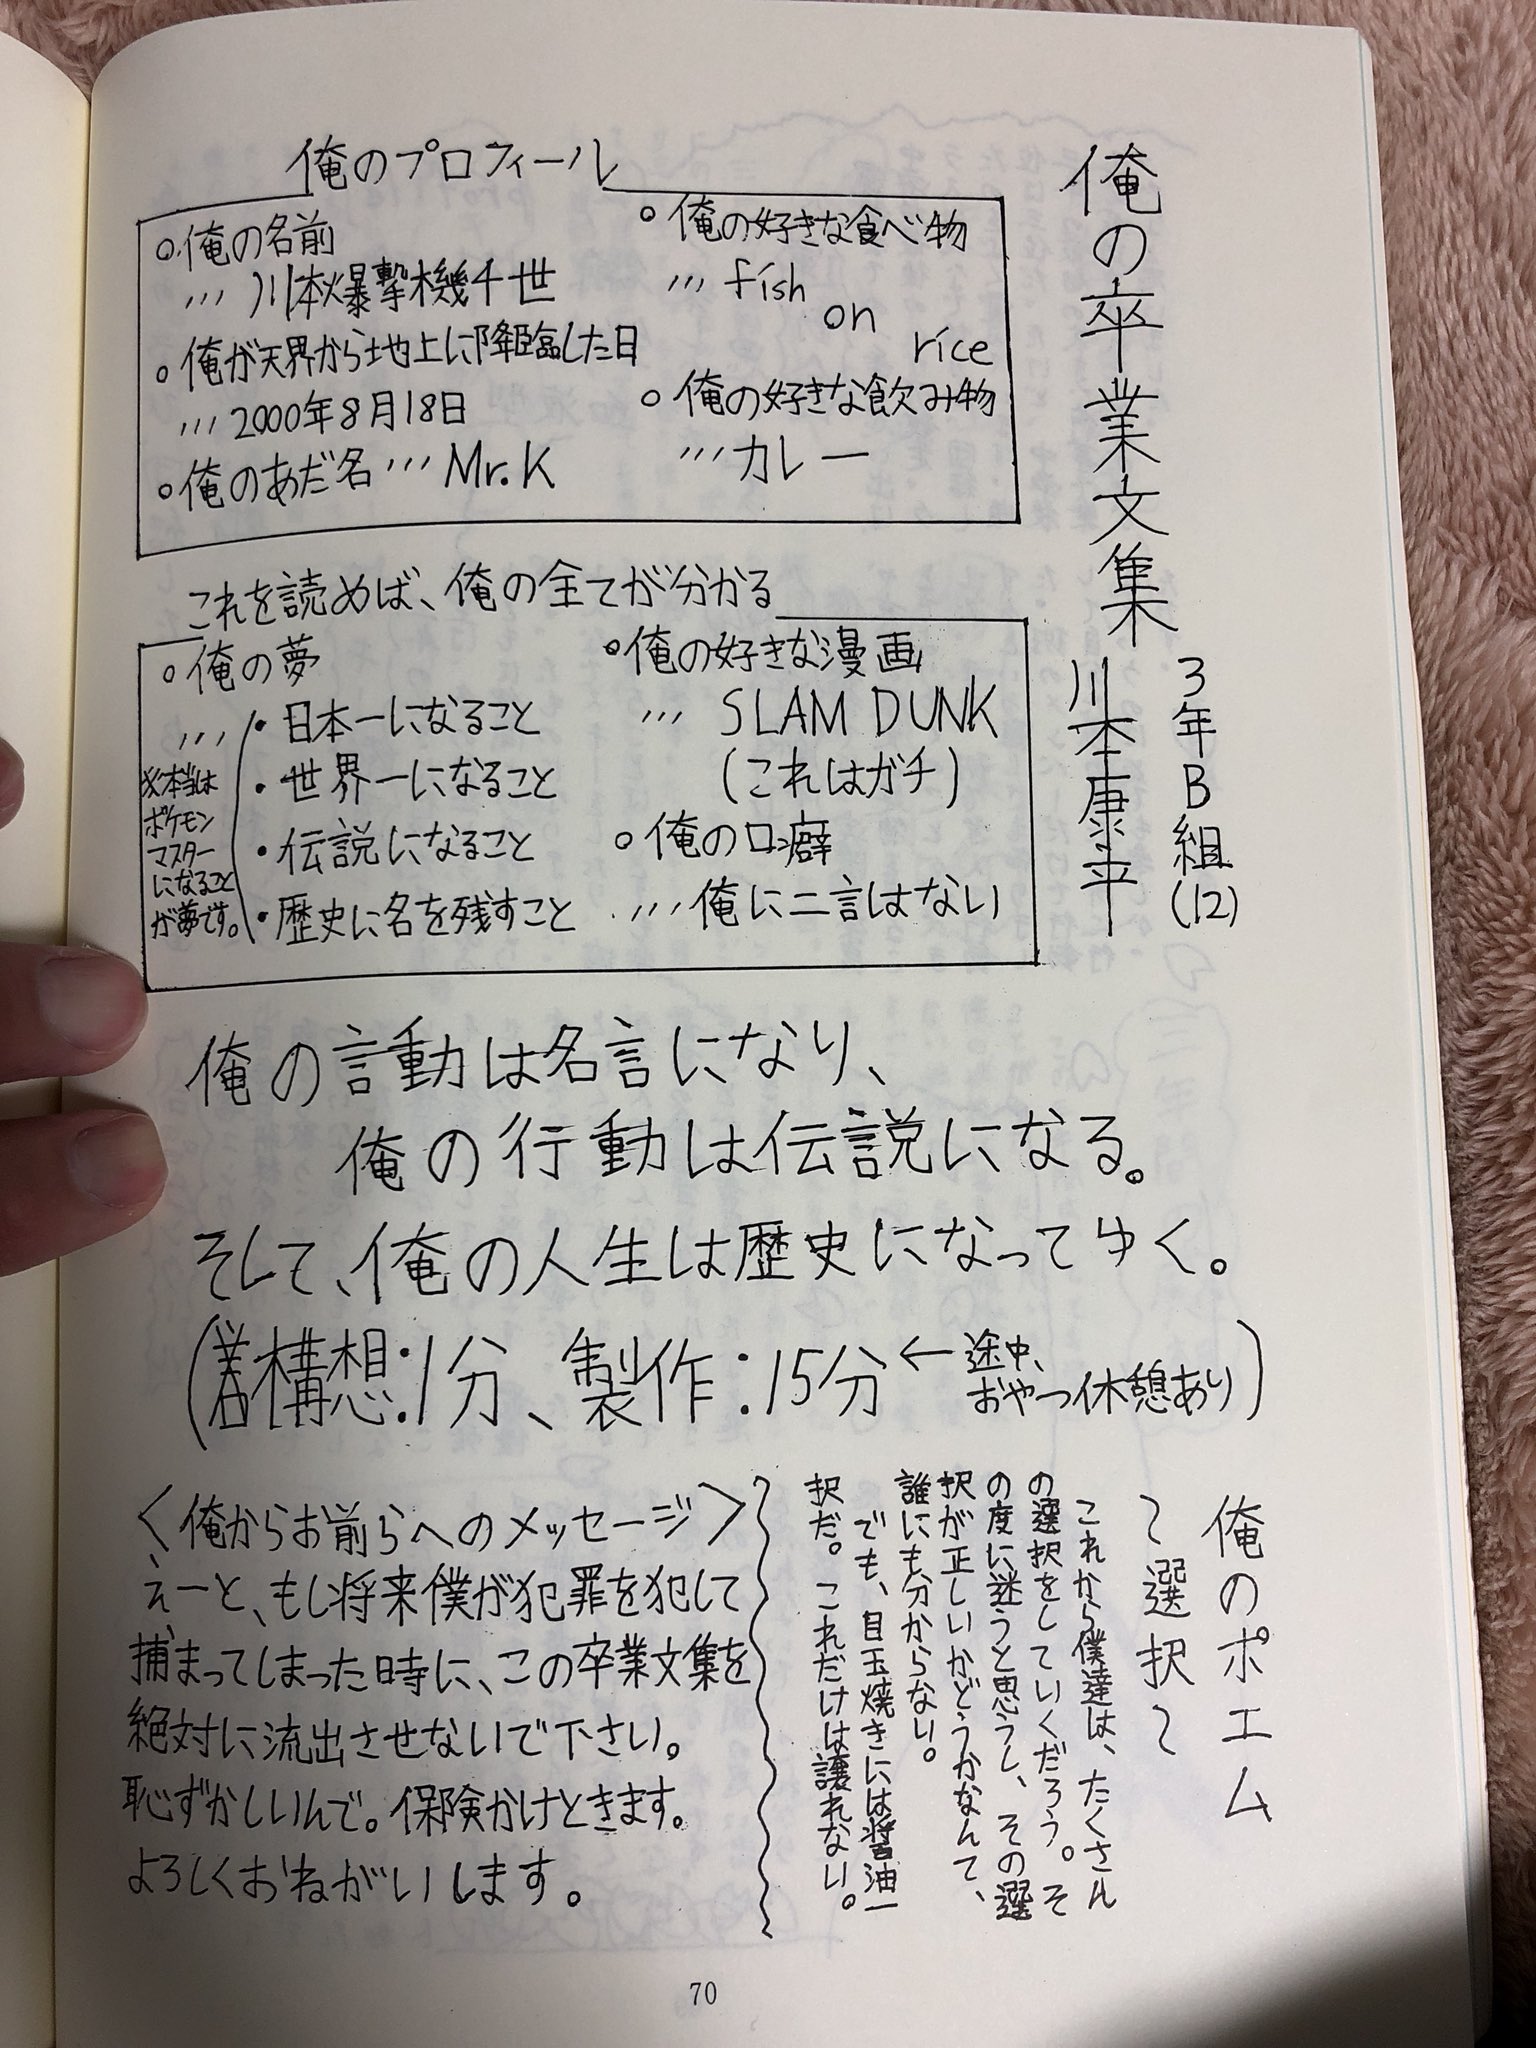 俺の卒業文集
3年B組(12)
川本康平
俺のプロフィール
○俺の名前
… 川本爆撃機千世
○俺が天界から地上に降臨した日
… 2000年8月18日
○俺のあだ名 … Mr.K
○俺の好きな食べ物
… fish
on
rice
○俺の好きな飲み物
… カレー
これを読めば、俺の全てが分かる
○俺の夢
…
・日本一になること
・世界一になること
・伝説になること
・歴史に名を残すこと
※本当は
ポケモン
マスター
になること
が夢です。
○俺の好きな漫画
… SLAM DUNK
(これはガチ)
○俺の口癖
… 俺に二言はない
俺の言動は名言になり、
俺の行動は伝説になる。
そして、俺の人生は歴史になってゆく。
(構想:1分、製作:15分←途中、
おやつ休憩あり)
俺のポエム
～選択～
これから僕達は、たくさん
の選択をしていくだろう。そ
の度に迷うと思うし、その選
択が正しいかどうかなんて、
誰にも分からない。
でも、目玉焼きには醤油一
択だ。これだけは譲れない。
〈俺からお前らへのメッセージ〉
えーと、もし将来僕が犯罪を犯して
捕まってしまった時に、この卒業文集を
絶対に流出させないで下さい。
恥ずかしいんで。保険かけときます。
よろしくおねがいします。
70